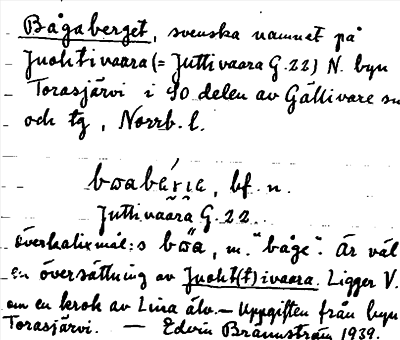 Bågaberget, svenska namnet på
Juohtivaara (= Juttivaara G. 22) N. byn
Torasjärvi i SO delen av Gällivare sn
och tg, Norrb. l.
bf. n.
Juttivaara G. 22.
överkalixmål:s m. "båge". Är väl
en översättning av Juoht(t)ivaara. Ligger V.
om en krok av Lina älv. — Uppgiften från byn
Torasjärvi. — Edvin Brännström 1939.